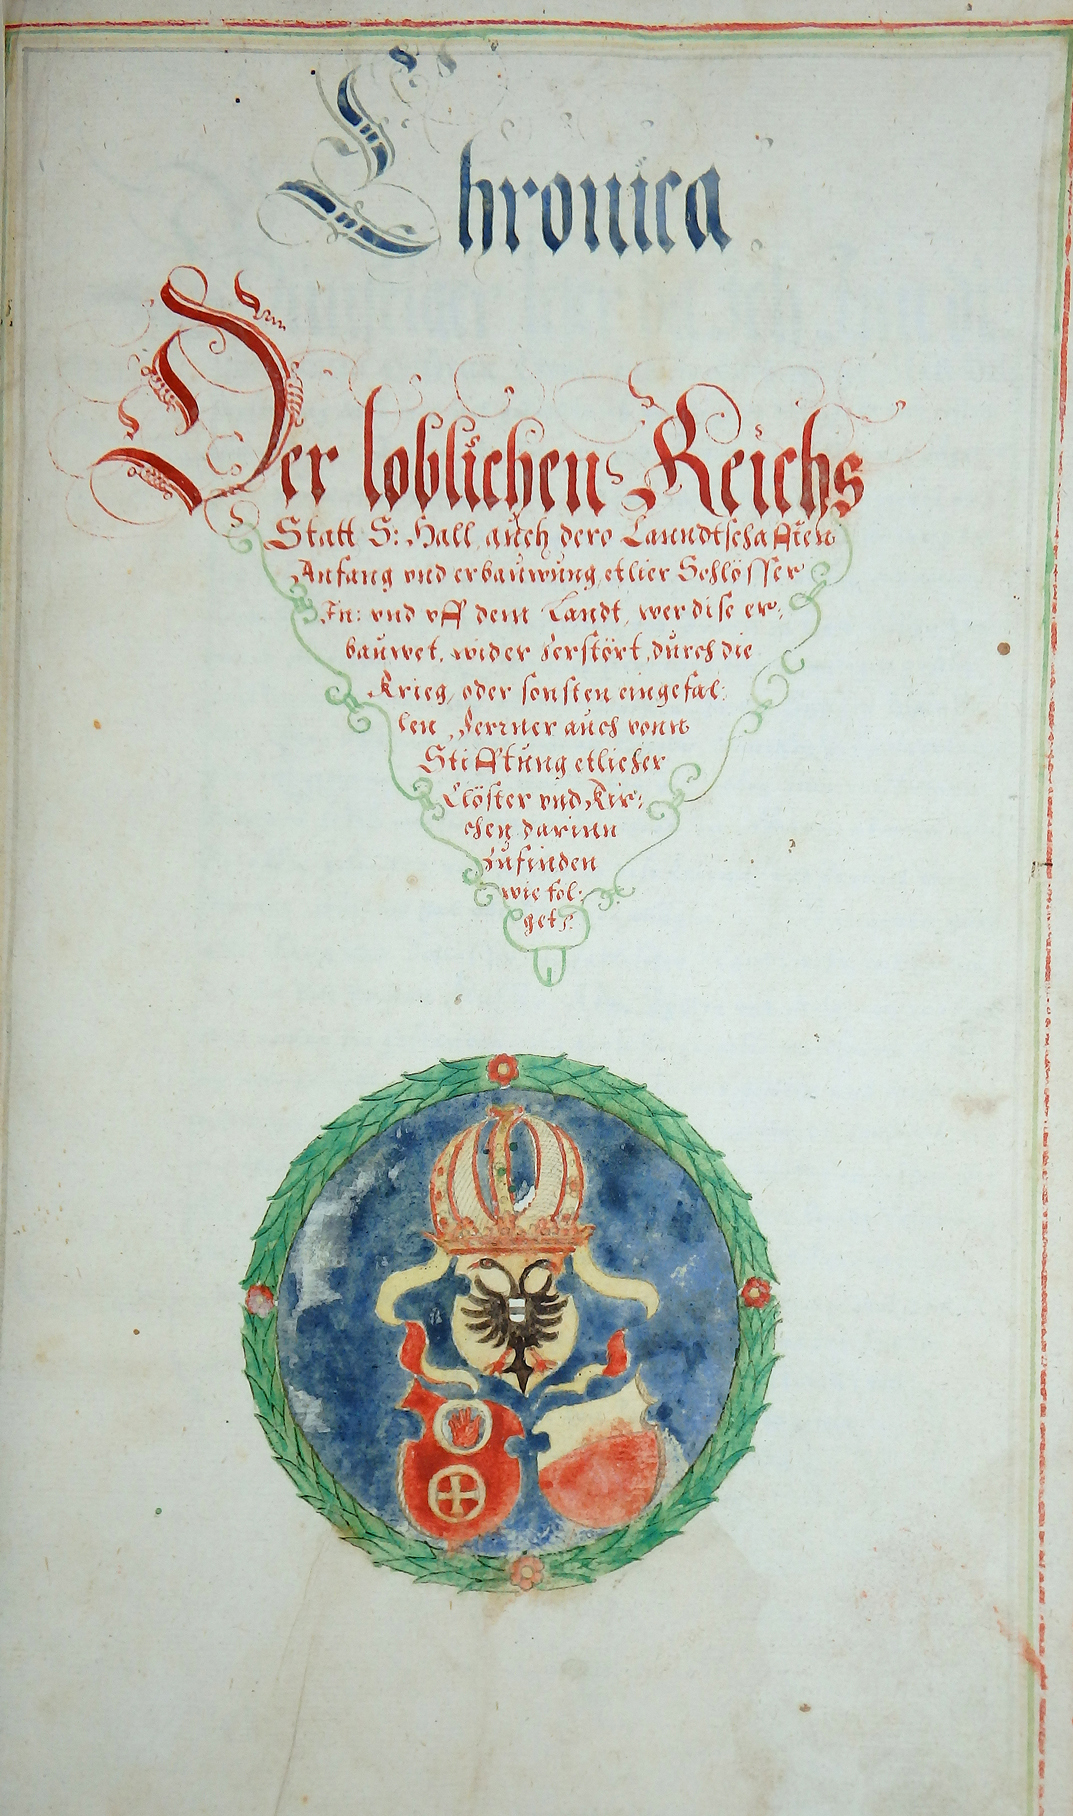 Chronica
Der loblichen Reichs
Statt S: Hall, auch dero Lanndtschafften
Anfang vnd erbauwung, etlier Schlösser
In: vnd vff dem Landt, wer dise er:
bauwet, wider zerstört, durch die
Krieg, oder sonsten eingefal:
len, Ferrner auch vonn
Stifftung etlicher
Clöster vnd Kir:
chen darinn
zufinden
wie fol:
get